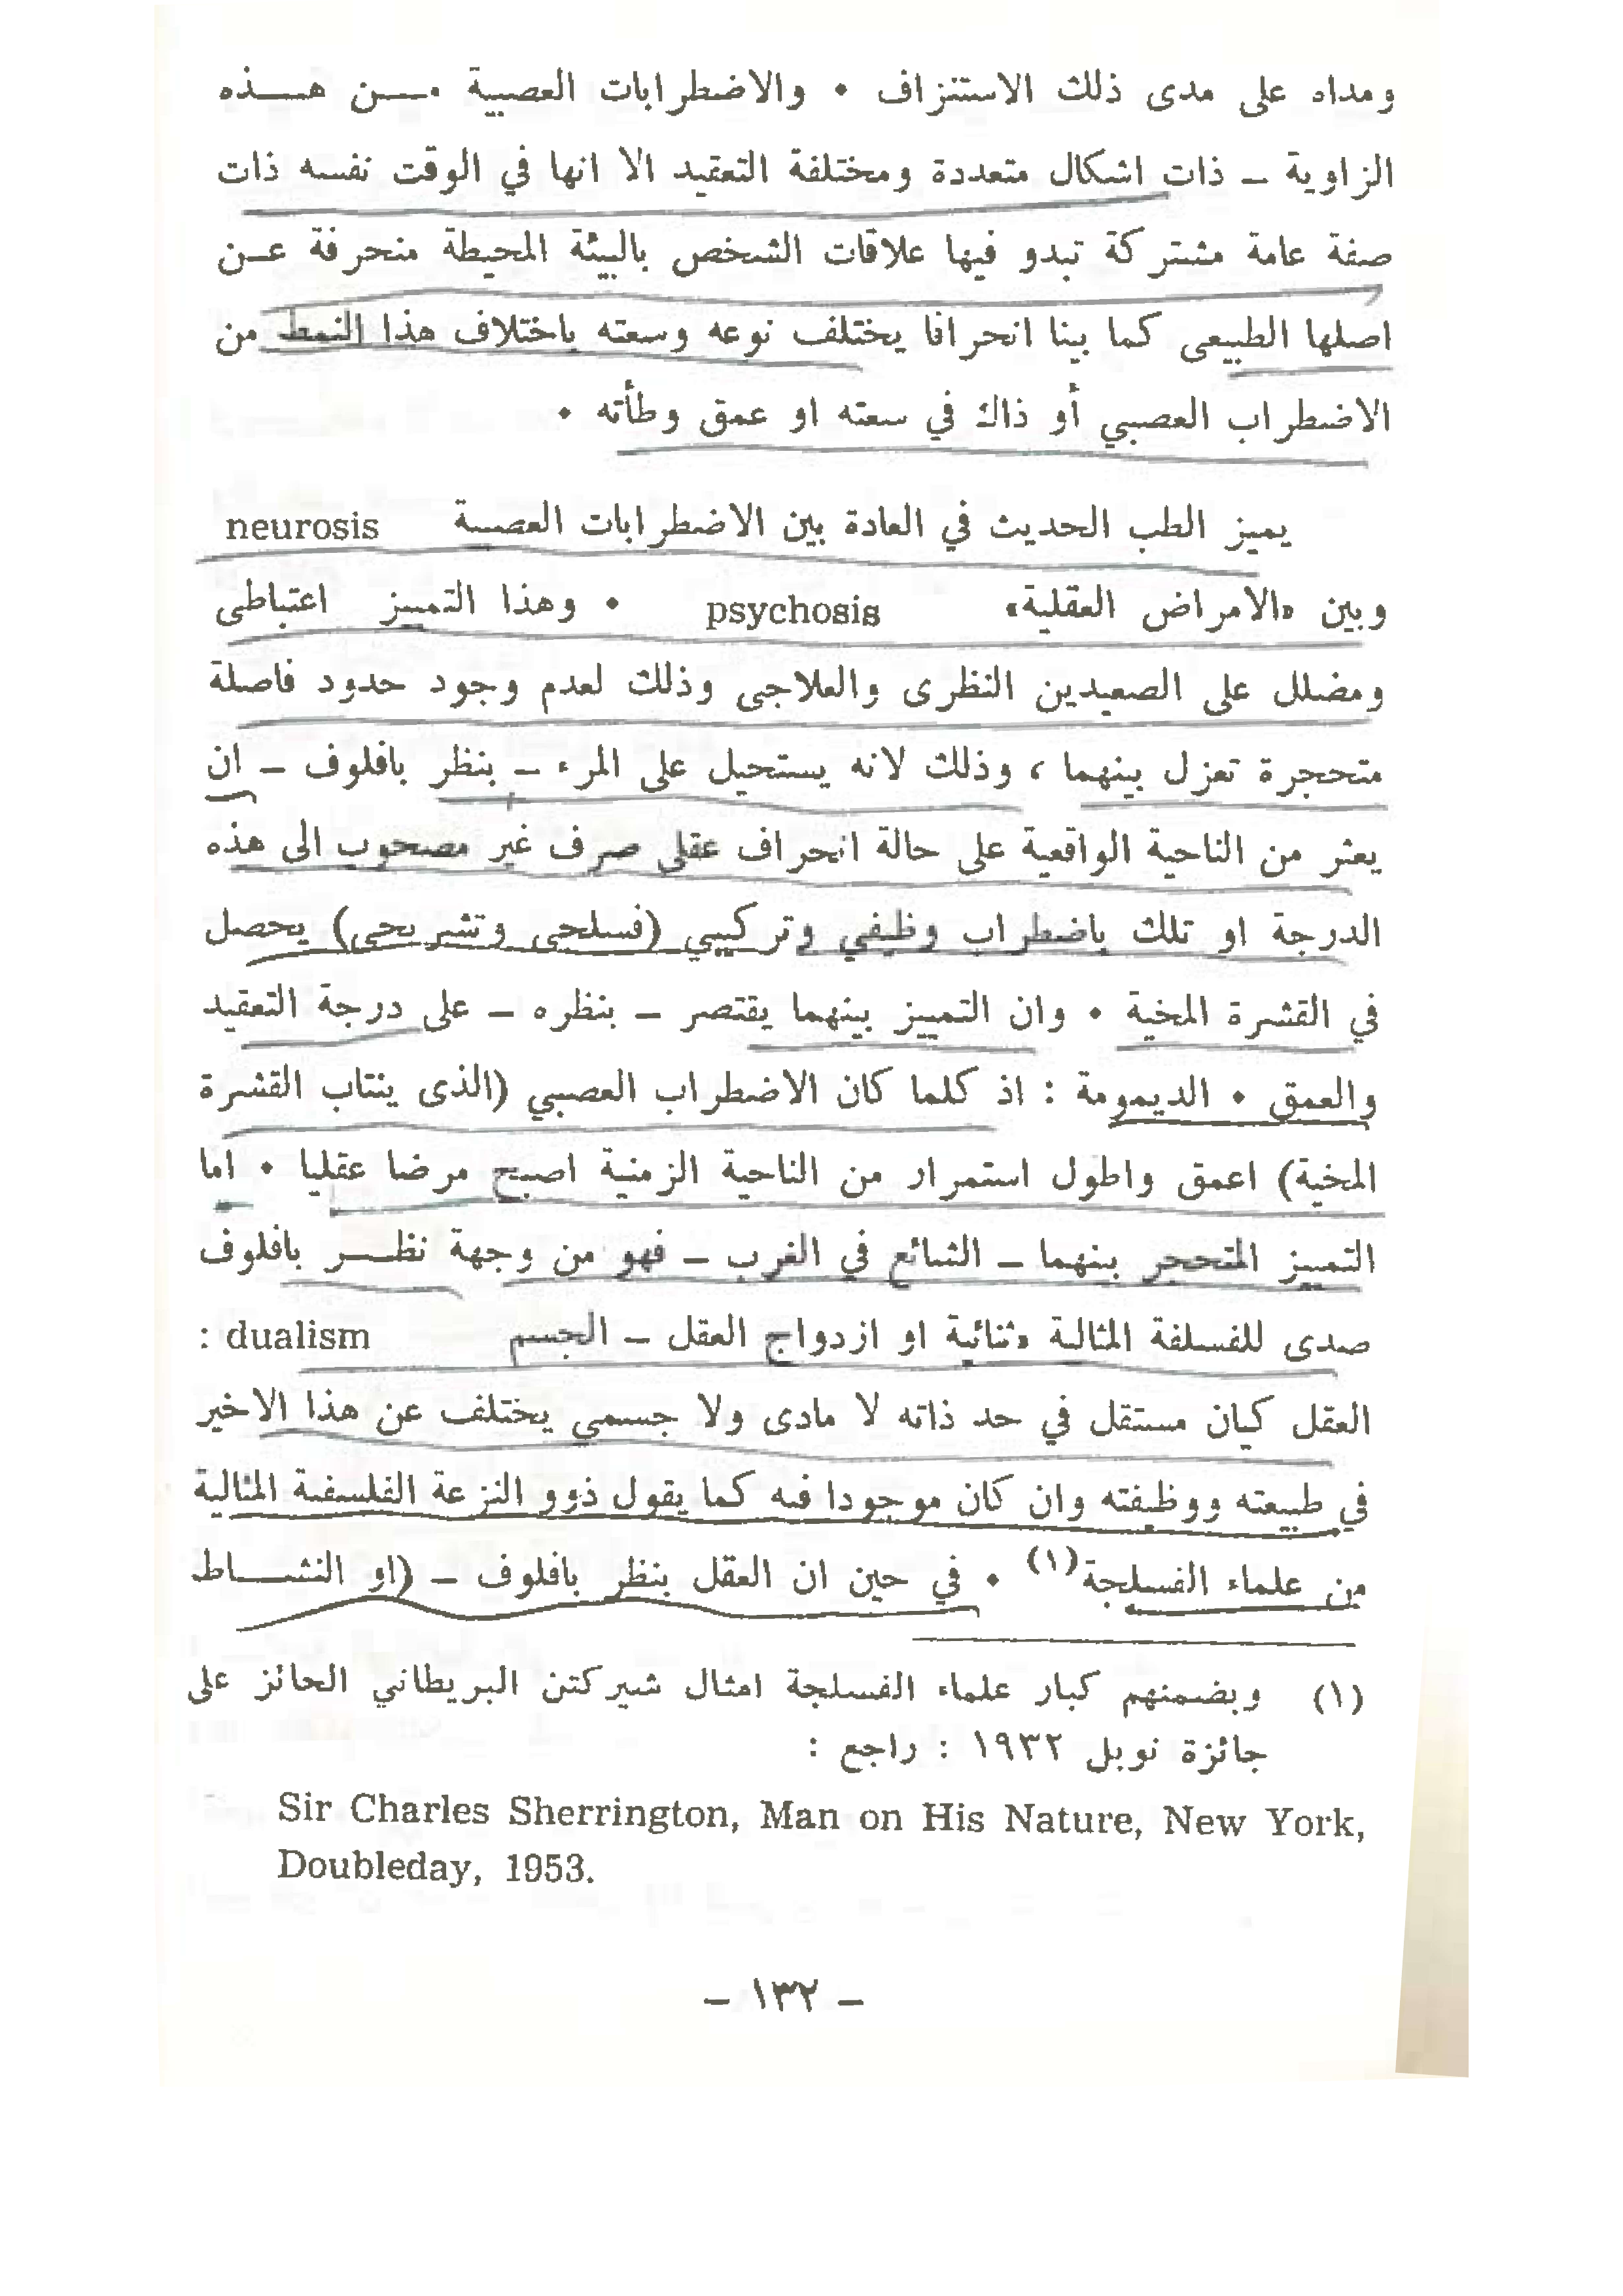 ومداه على مدى ذلك الاستنزاف • والاضطرابات العصبية من هذه
الزاوية - ذات اشكال متعددة ومختلفة التعقيد الا انها في الوقت نفسه ذات
صفة عامة مشتركة تبدو فيها علاقات الشخص بالبيئة المحيطة منحرفة عن
اصلها الطبيعى كما بينا انحرافا يختلف نوعه وسعته باختلاف هذا النمط من
الاضطراب العصبي أو ذاك في سعته او عمق وطأته •
يميز الطب الحديث في العادة بين الاضطرابات العصبية neurosis
وبين «الامراض العقلية» psychosis • وهذا التمييز اعتباطى
ومضلل على الصعيدين النظرى والعلاجى وذلك لعدم وجود حدود فاصلة
متحجرة تعزل بينهما ، وذلك لانه يستحيل على المرء - بنظر بافلوف - ان
يعثر من الناحية الواقعية على حالة انحراف عقلى صرف غير مصحوب الى هذه
الدرجة او تلك باضطراب وظيفي وتركيبي (فسلجى وتشريحى) يحصل
في القشرة المخية • وان التمييز بينهما يقتصر - بنظره - على درجة التعقيد
والعمق • الديمومة : اذ كلما كان الاضطراب العصبي (الذى ينتاب القشرة
المخية) اعمق واطول استمرار من الناحية الزمنية اصبح مرضا عقليا • اما
التمييز المتحجر بينهما - الشائع في الغرب - فهو من وجهة نظر بافلوف
صدى للفسلفة المثالية «ثنائية او ازدواج العقل - الجسم dualism :
العقل كيان مستقل في حد ذاته لا مادى ولا جسمي يختلف عن هذا الاخير
في طبيعته ووظيفته وان كان موجودا فيه كما يقول ذوو النزعة الفلسفية المثالية
من علماء الفسلجة(١) • في حين ان العقل بنظر بافلوف - (او النشاط
(١) وبضمنهم كبار علماء الفسلجة امثال شيركتن البريطاني الحائز على
جائزة نوبل ١٩٣٢ : راجع :
Sir Charles Sherrington, Man on His Nature, New York,
Doubleday, 1953.
- ١٣٢ -